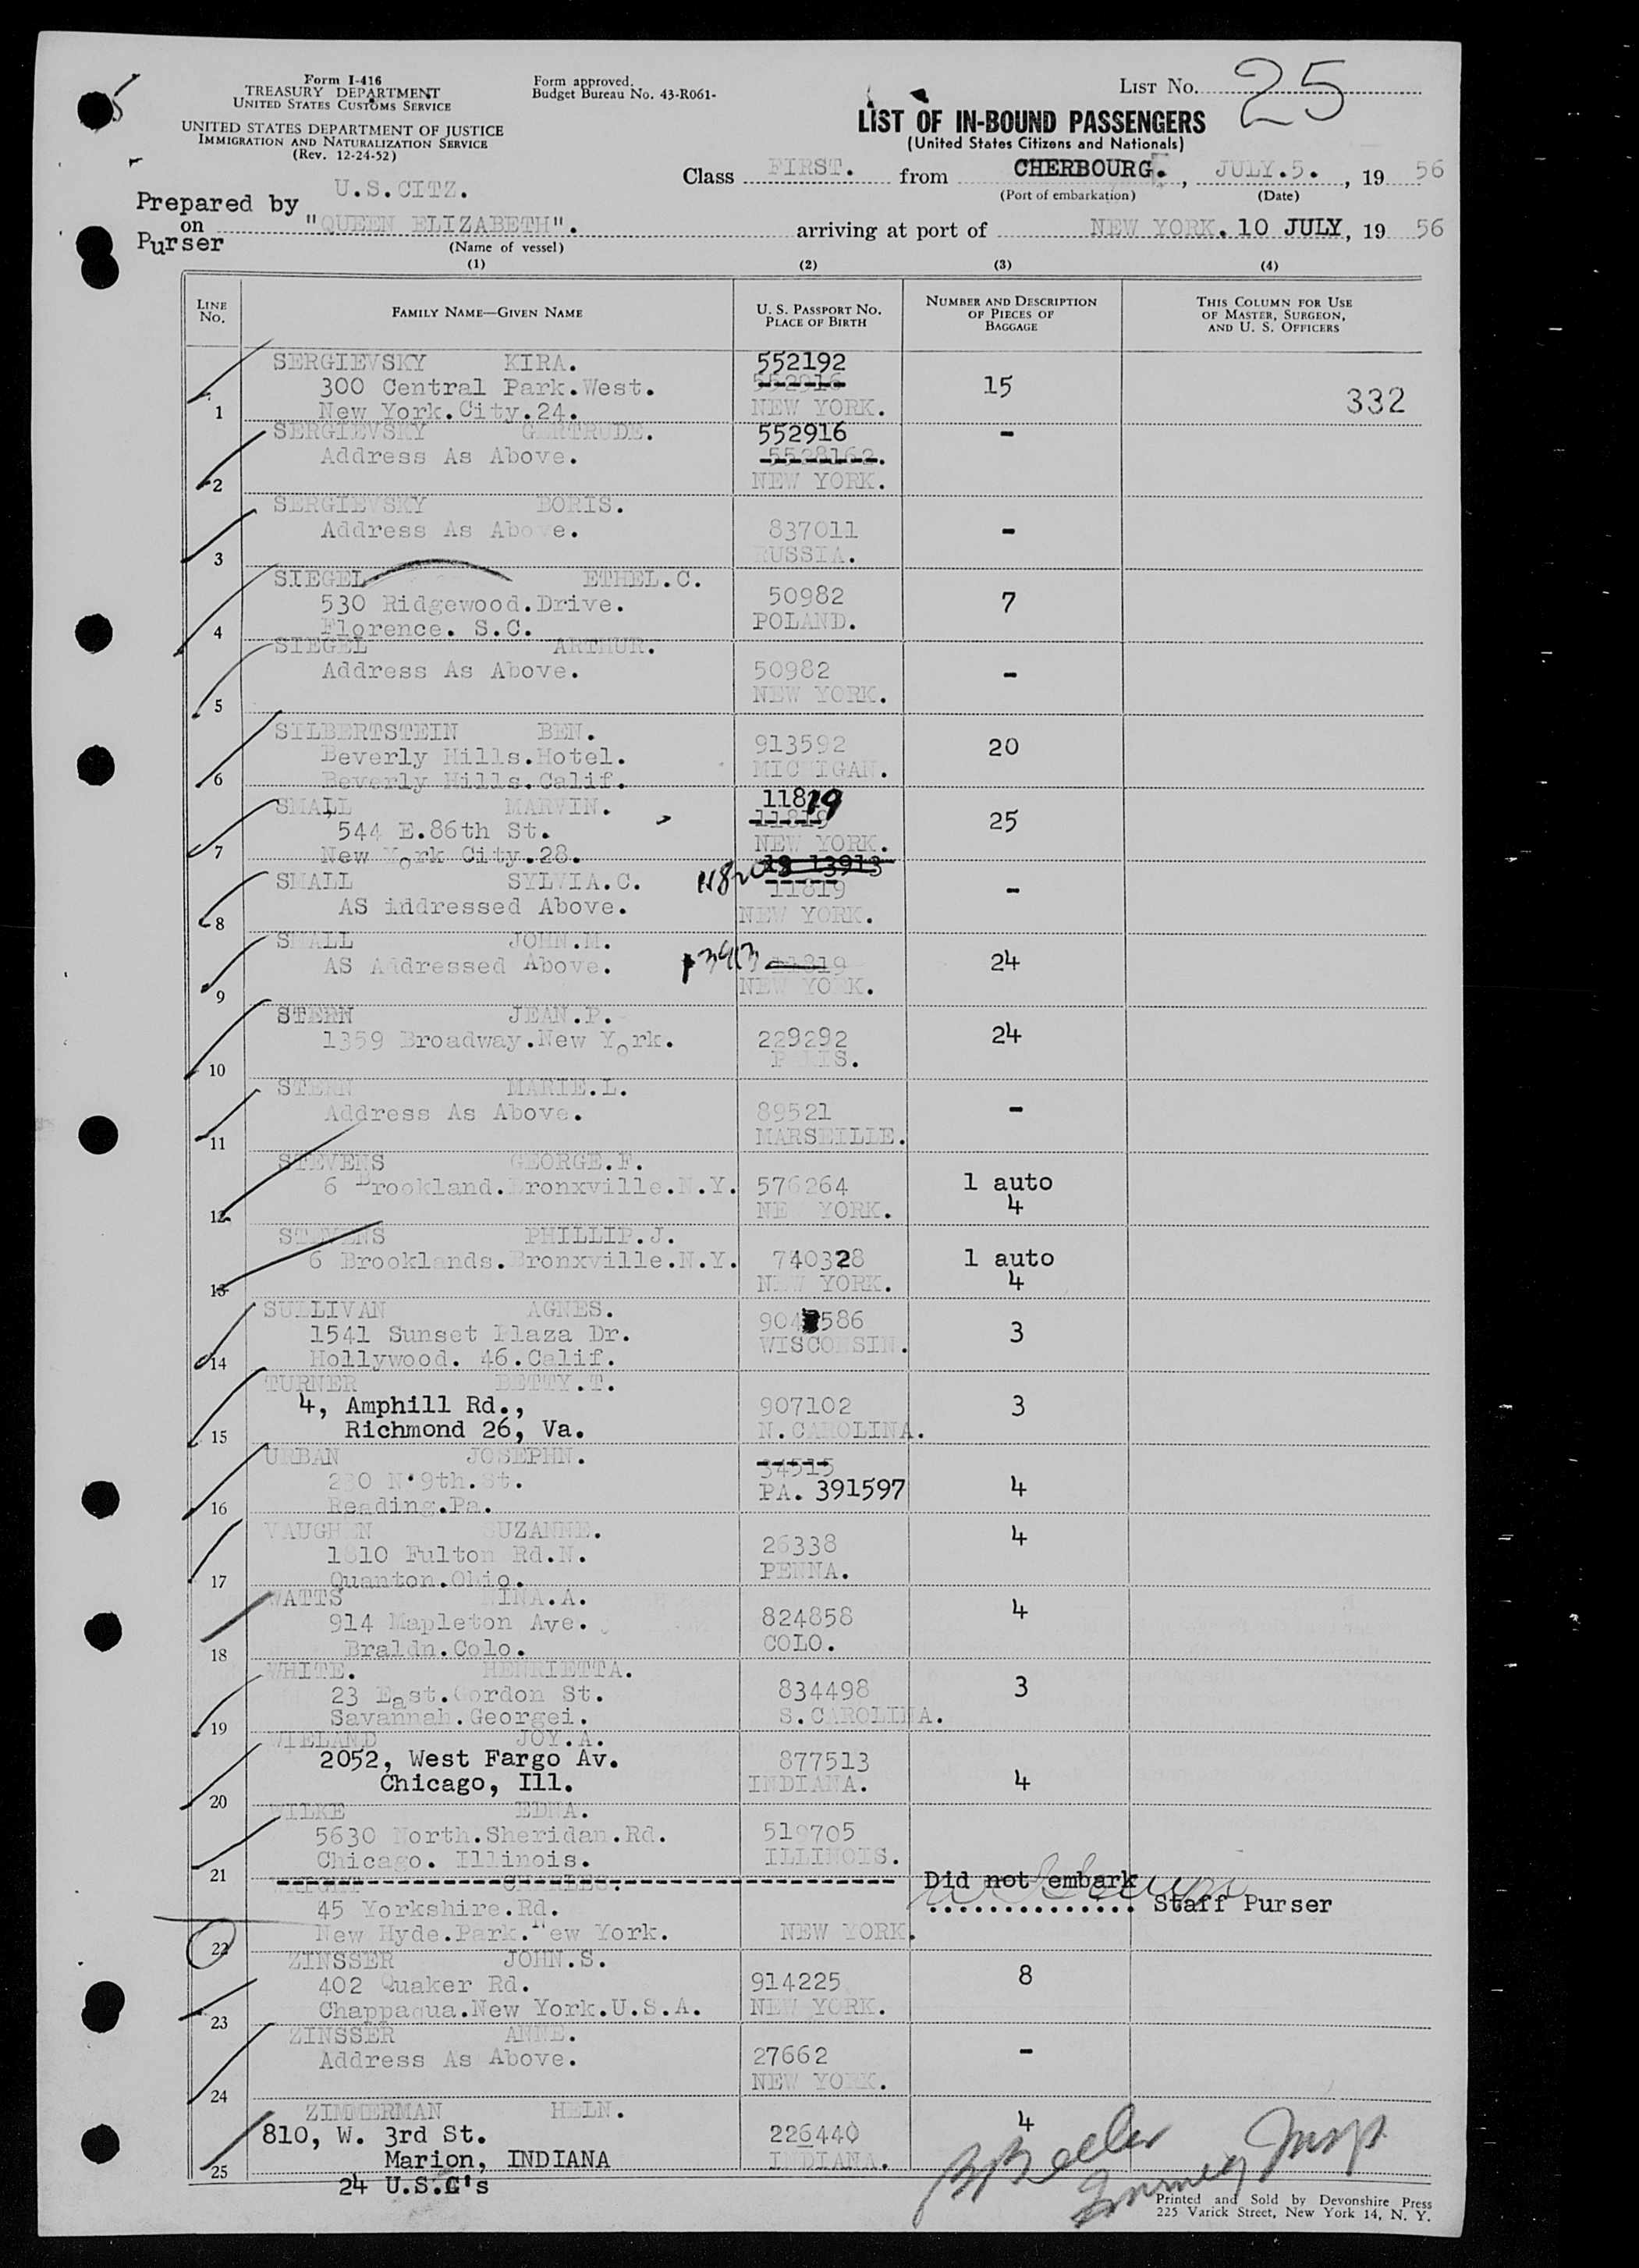 Form I-416
TREASURY DEPARTMENT
UNITED STATES CUSTOMS SERVICE
UNITED STATES DEPARTMENT OF JUSTICE
IMMIGRATION AND NATURALIZATION SERVICE
(Rev. 12-24-52)
Form approved.
Budget Bureau No. 43-R061-
LIST No. 25
LIST OF IN-BOUND PASSENGERS
(United States Citizens and Nationals)
Class FIRST. from CHERBOURG. , JULY.5. , 19 56
(Port of embarkation) (Date)
U.S.CITZ.
Prepared by
on "QUEEN ELIZABETH". arriving at port of NEW YORK. 10 JULY, 19 56
Purser (Name of vessel)
(1) (2) (3) (4)
LINE No. FAMILY NAME—GIVEN NAME U. S. PASSPORT No. PLACE OF BIRTH NUMBER AND DESCRIPTION OF PIECES OF BAGGAGE THIS COLUMN FOR USE OF MASTER, SURGEON, AND U. S. OFFICERS
SERGIEVSKY KIRA. 552192
300 Central Park.West. 552916 15
1 New York.City.24. NEW YORK. 332
SERGIEVSKY GERTRUDE. 552916 -
Address As Above. 5528162.
2 NEW YORK.
SERGIEVSKY BORIS.
Address As Above. 837011 -
3 RUSSIA.
SIEGEL ETHEL.C.
530 Ridgewood.Drive. 50982 7
4 Florence. S.C. POLAND.
SIEGEL ARTHUR.
Address As Above. 50982 -
5 NEW YORK.
SILBERTSTEIN BEN.
Beverly Hills.Hotel. 913592 20
6 Beverly Hills.Calif. MICHIGAN.
SMALL MARVIN. 11819
544 E.86th St. 11819 25
7 New York City.28. NEW YORK.
13913
SMALL SYLVIA.C. 11820 11819 -
8 AS Addressed Above. NEW YORK.
SMALL JOHN.M.
AS Addressed Above. 13913 11819 24
9 NEW YORK.
STERN JEAN.P.
1359 Broadway.New York. 229292 24
10 PARIS.
STERN MARIE.L.
Address As Above. 89521 -
11 MARSEILLE.
STEVENS GEORGE.F.
6 Brookland.Bronxville.N.Y. 576264 1 auto
12 NEW YORK. 4
STEVENS PHILLIP.J.
6 Brooklands.Bronxville.N.Y. 740328 1 auto
13 NEW YORK. 4
SULLIVAN AGNES.
1541 Sunset Plaza Dr. 904586 3
14 Hollywood. 46.Calif. WISCONSIN.
TURNER BETTY.T.
4, Amphill Rd., 907102 3
15 Richmond 26, Va. N.CAROLINA.
URBAN JOSEPHN. 34515
230 N.9th.St. PA. 391597 4
16 Reading.Pa.
VAUGHEN SUZANNE. 4
1810 Fulton Rd.N. 26338
17 Quanton.Ohio. PENNA.
WATTS NINA.A.
914 Mapleton Ave. 824858 4
18 Braldn.Colo. COLO.
WHITE. HENRIETTA.
23 East.Gordon St. 834498 3
19 Savannah.Georgei. S.CAROLINA.
WIELAND JOY.A.
2052, West Fargo Av. 877513
20 Chicago, Ill. INDIANA. 4
WILKE EDNA.
5630 North.Sheridan.Rd. 519705
21 Chicago. Illinois. ILLINOIS.
WRIGHT CHARLES. Did not embark
45 Yorkshire.Rd. Staff Purser
22 New Hyde.Park.New York. NEW YORK.
ZINSSER JOHN.S.
402 Quaker Rd. 914225 8
23 Chappaqua.New York.U.S.A. NEW YORK.
ZINSSER ANNE.
Address As Above. 27662 -
24 NEW YORK.
ZIMMERMAN HELN. 4
810, W. 3rd St. 226440
25 Marion, INDIANA INDIANA.
24 U.S.C's
Printed and Sold by Devonshire Press
225 Varick Street, New York 14, N. Y.